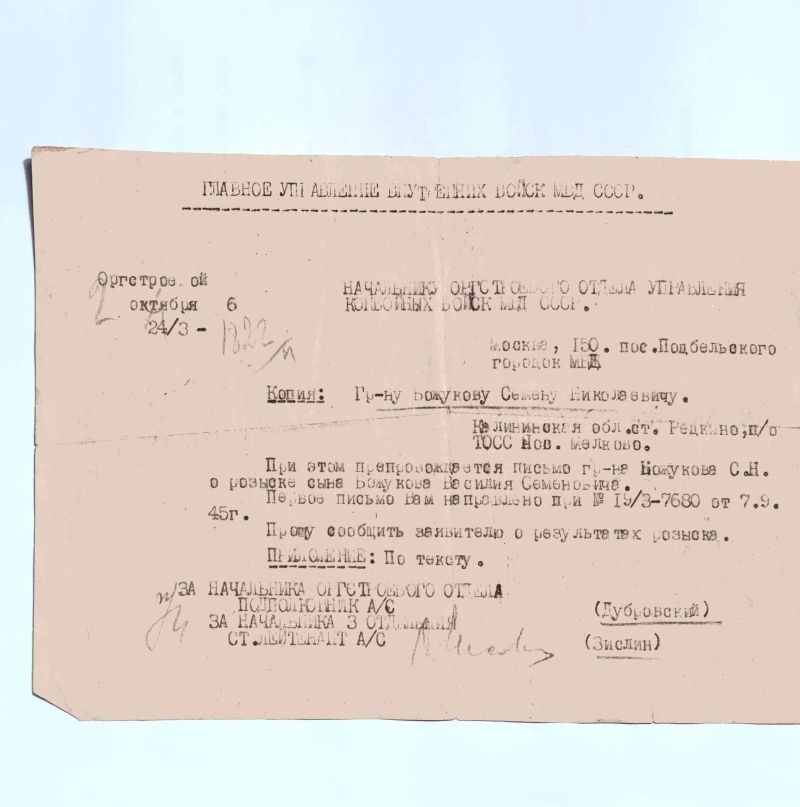 ГЛАВНОЕ УПРАВЛЕНИЕ ВНУТРЕННИХ ВОЙСК МВД СССР.
Оргстроевой
2 октября 6
24/3 - 1822/п
НАЧАЛЬНИКУ ОРГСТРОЕВОГО ОТДЕЛА УПРАВЛЕНИЯ
КОНВОЙНЫХ ВОЙСК МВД СССР.
Москва, 150. пос.Подбельского
городок МВД
Копия: Гр-ну Божукову Семену Николаевичу.
Калининская обл.ст. Редкино,п/о
ТОСС Нов. Мелково.
При этом препровождается письмо гр-на Божукова С.Н.
о розыске сына Божукова Василия Семеновича.
Первое письмо Вам направлено при № 19/3-7680 от 7.9.
45г.
Прошу сообщить заявителю о результатах розыска.
ПРИЛОЖЕНИЕ: По тексту.
п/п ЗА НАЧАЛЬНИКА ОРГСТРОЕВОГО ОТДЕЛА
ПОДПОЛКОВНИК А/С (Дубровский)
ЗА НАЧАЛЬНИКА 3 ОТДЕЛЕНИЯ
СТ.ЛЕЙТЕНАНТ А/С (Зислин)